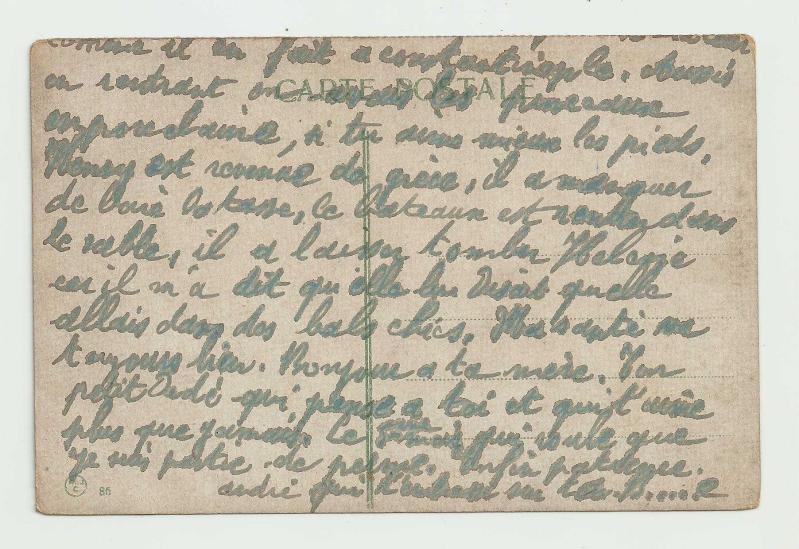 comme il en fait a constantinople. 
en rentrant on les
CARTE POSTALE
en porcelaine, si tu aime mieux les pieds,
Henry est revenue de grèce, il a manquer
de boire la tasse, le bateaux est rentre dans
le sable, il a laisser tomber Helene
car il m'a dit qu'elle lui disait quelle
allais dans des bals chics. Ma santé va
toujours bien. Bonjour a ta mère. Ton
petit Dédé qui pense a toi et qui t'aime
plus que jamais. Le qui que
je suis de perme. Enfin patience.
andré qui t'embrasse sur ta B.....e
86